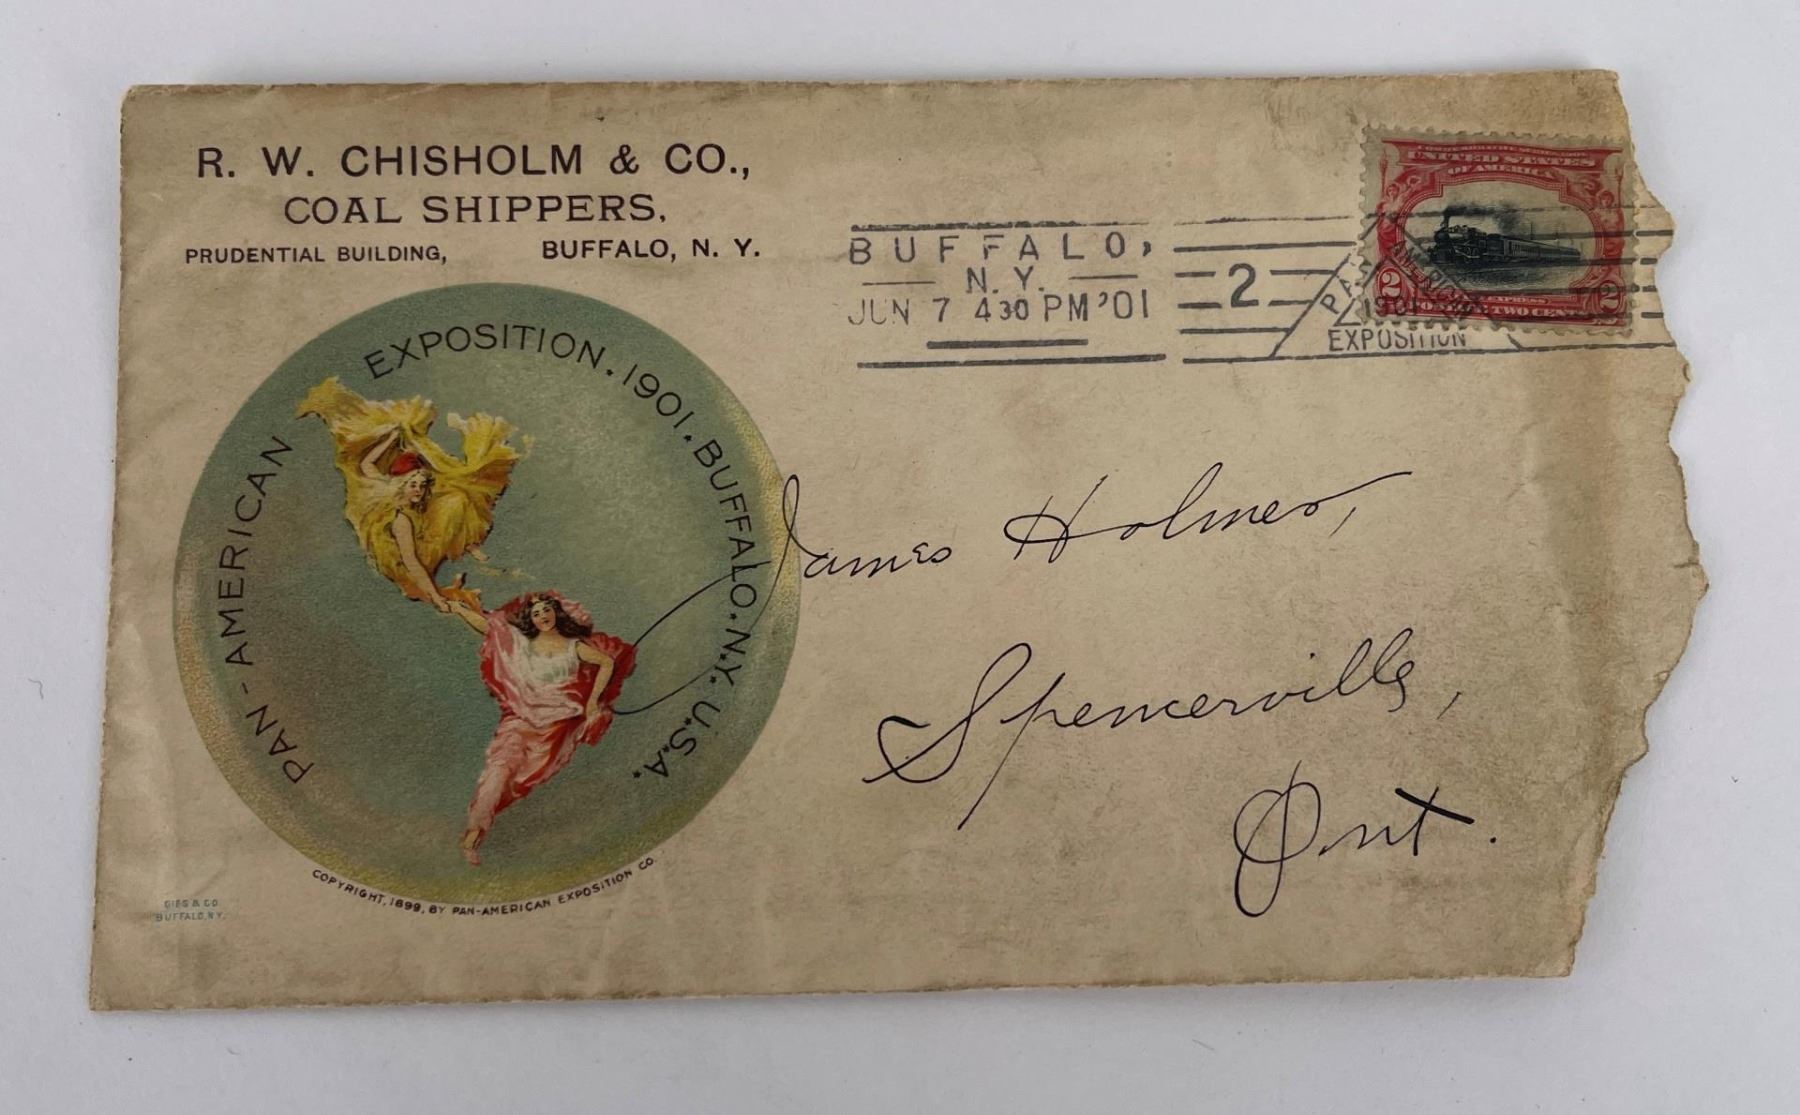 R. W. CHISHOLM & CO.,
COAL SHIPPERS.
PRUDENTIAL BUILDING, BUFFALO, N. Y.
BUFFALO,
N.Y.
JUN 7 4 30 PM '01
2
PAN AMERICAN
1901
EXPOSITION
COMMEMORATIVE SERIES 1901
UNITED STATES
OF AMERICA
EXPRESS
2 TWO CENTS 2
PAN-AMERICAN EXPOSITION. 1901. BUFFALO. N.Y. U.S.A.
James Holmes,
Spencerville,
Ont.
COPYRIGHT, 1899, BY PAN-AMERICAN EXPOSITION CO.
GIES & CO
BUFFALO, N.Y.